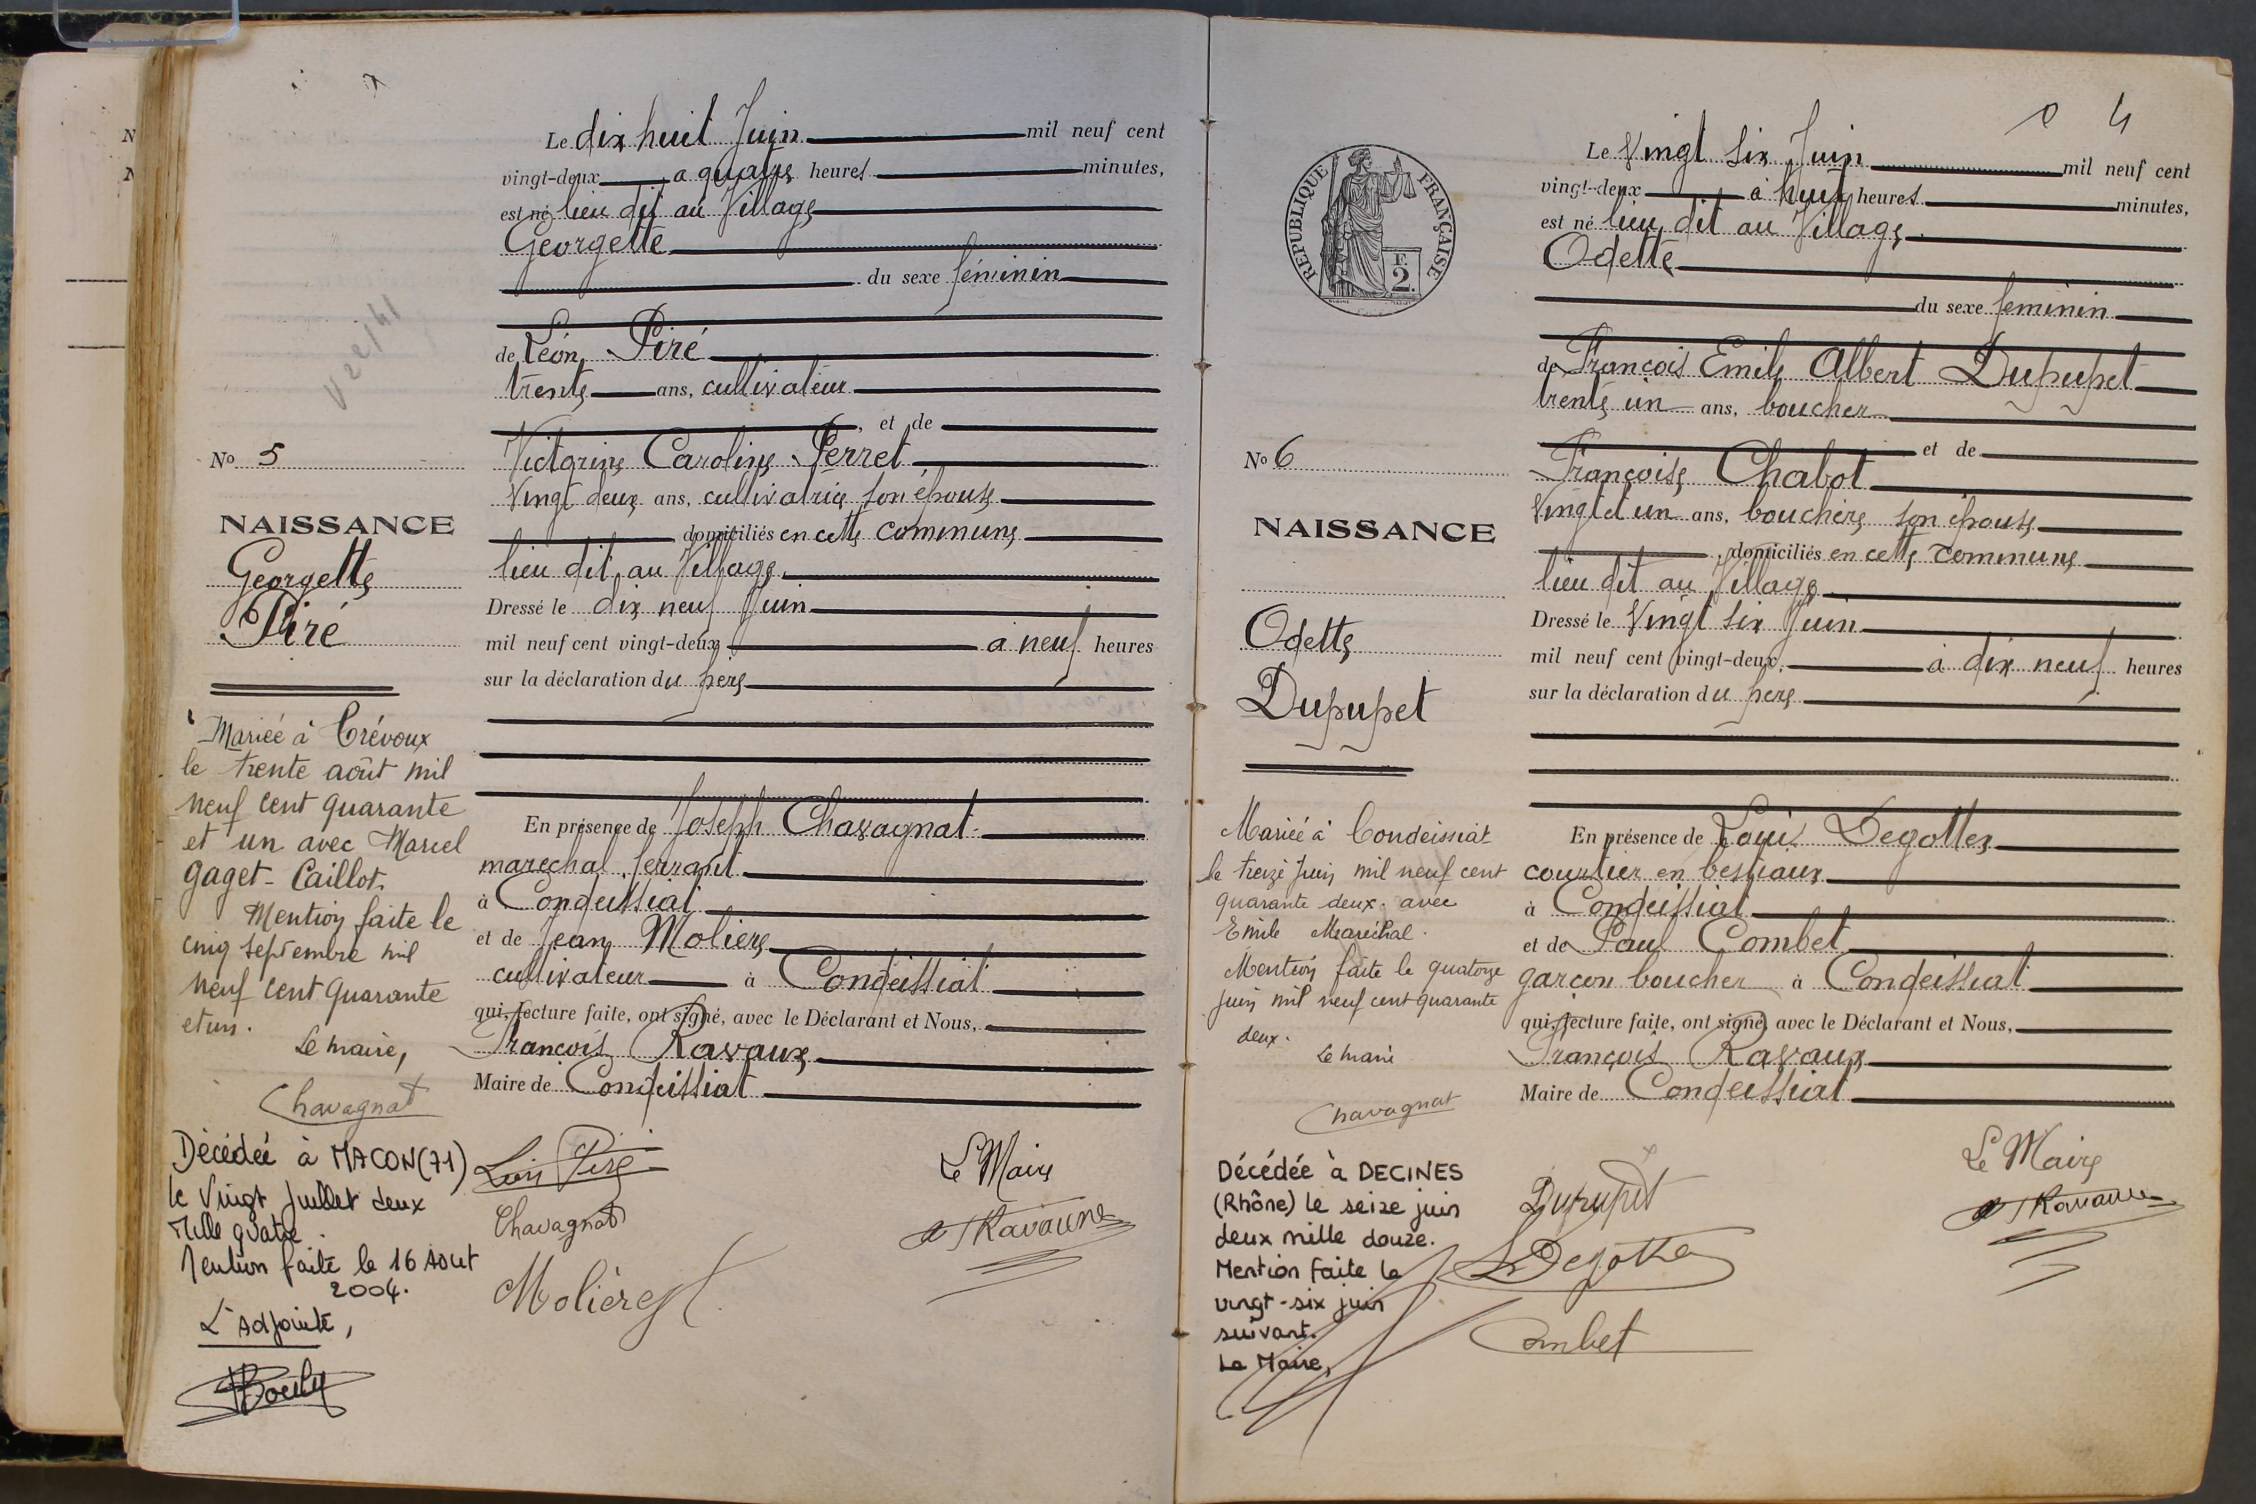 Le dix huit Juin mil neuf cent
vingt-deux à quatre heures minutes,
est né lieu dit au Village
Georgette
du sexe féminin
de Léon Piré
trente ans, cultivateur
, et de
Victorine Caroline Perret
Vingt deux ans, cultivatrice son épouse
domiciliés en cette commune
lieu dit au Village
Dressé le dix neuf Juin
mil neuf cent vingt-deux à neuf heures
sur la déclaration du père
En présence de Joseph Chavagnat
maréchal ferrant
à Condeissiat
et de Jean Molière
cultivateur à Condeissiat
qui, lecture faite, ont signé, avec le Déclarant et Nous,
François Ravaux
Maire de Condeissiat
Léon Piré
Chavagnat
Molière
Le Maire
Nº 5
NAISSANCE
Georgette
Piré
Mariée à Trévoux
le trente août mil
neuf cent quarante
et un avec Marcel
Gaget-Caillot.
Mention faite le
cinq septembre mil
neuf cent quarante
et un.
Le maire,
Chavagnat
Décédée à MACON (71)
le Vingt Juillet deux
Mille quatre.
Mention faite le 16 Aout
2004.
L'Adjointe,
4
REPUBLIQUE FRANÇAISE
F.
2.
Le Vingt Six Juin mil neuf cent
vingt-deux à huit heures minutes,
est né lieu dit au Village
Odette
du sexe féminin
de François Emile Albert Dupupet
trente un ans, boucher
et de
Françoise Chabot
Vingt et un ans, bouchère son épouse
, domiciliés en cette commune
lieu dit au Village
Dressé le Vingt six Juin
mil neuf cent vingt-deux, à dix neuf heures
sur la déclaration du père
En présence de Louis Degottex
courtier en bestiaux
à Condeissiat
et de Paul Combet
garçon boucher à Condeissiat
qui, lecture faite, ont signé, avec le Déclarant et Nous,
François Ravaux
Maire de Condeissiat
Dupupet
Combet
Le Maire
Nº 6
NAISSANCE
Odette
Dupupet
Mariée à Condeissiat
le treize Juin mil neuf cent
quarante deux. avec
Emile Maréchal.
Mention faite le quatorze
juin mil neuf cent quarante
deux.
Le maire
Chavagnat
Décédée à DECINES
(Rhône) le seize juin
deux mille douze.
Mention faite le
vingt-six juin
suivant.
Le Maire,